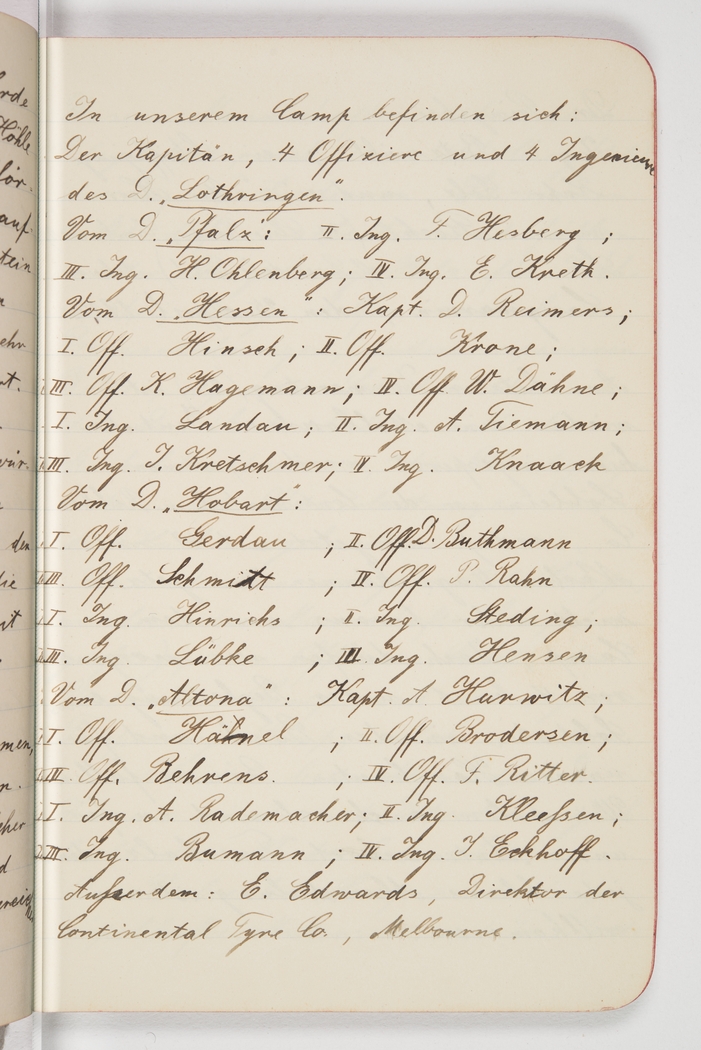 In unserem Camp befinden sich:
Der Kapitän, 4 Offiziere und 4 Ingenieure
des D. „Lothringen".
Vom D. „Pfalz": II. Ing. F. Hesberg ;
III. Ing. H. Ohlenberg; IV. Ing. E. Kreth.
Vom D. „Hessen" : Kapt. D. Reimers;
I. Off. Hinsch; II. Off. Krone;
III. Off. K. Hagemann; IV. Off. W. Dähne;
I. Ing. Landau; II. Ing. A. Tiemann;
III. Ing. J. Kretschmer; IV. Ing. Knaack
Vom D. „Hobart":
I. Off. Gerdau ; II. Off. D. Buthmann
III. Off. Schmidt ; IV. Off. P. Rahn
I. Ing. Hinrichs ; II. Ing. Steding;
III. Ing. Lübke ; III. Ing. Hensen
Vom D. „Altona" : Kapt. A. Hurwitz;
I. Off. Hähnel ; II. Off. Brodersen;
III. Off. Behrens. ; IV. Off. F. Ritter.
I. Ing. A. Rademacher; II. Ing. Kleeſsen;
III. Ing. Bumann ; IV. Ing. J. Eckhoff.
Auſserdem: E. Edwards, Direktor der
Continental Tyre Co., Melbourne.